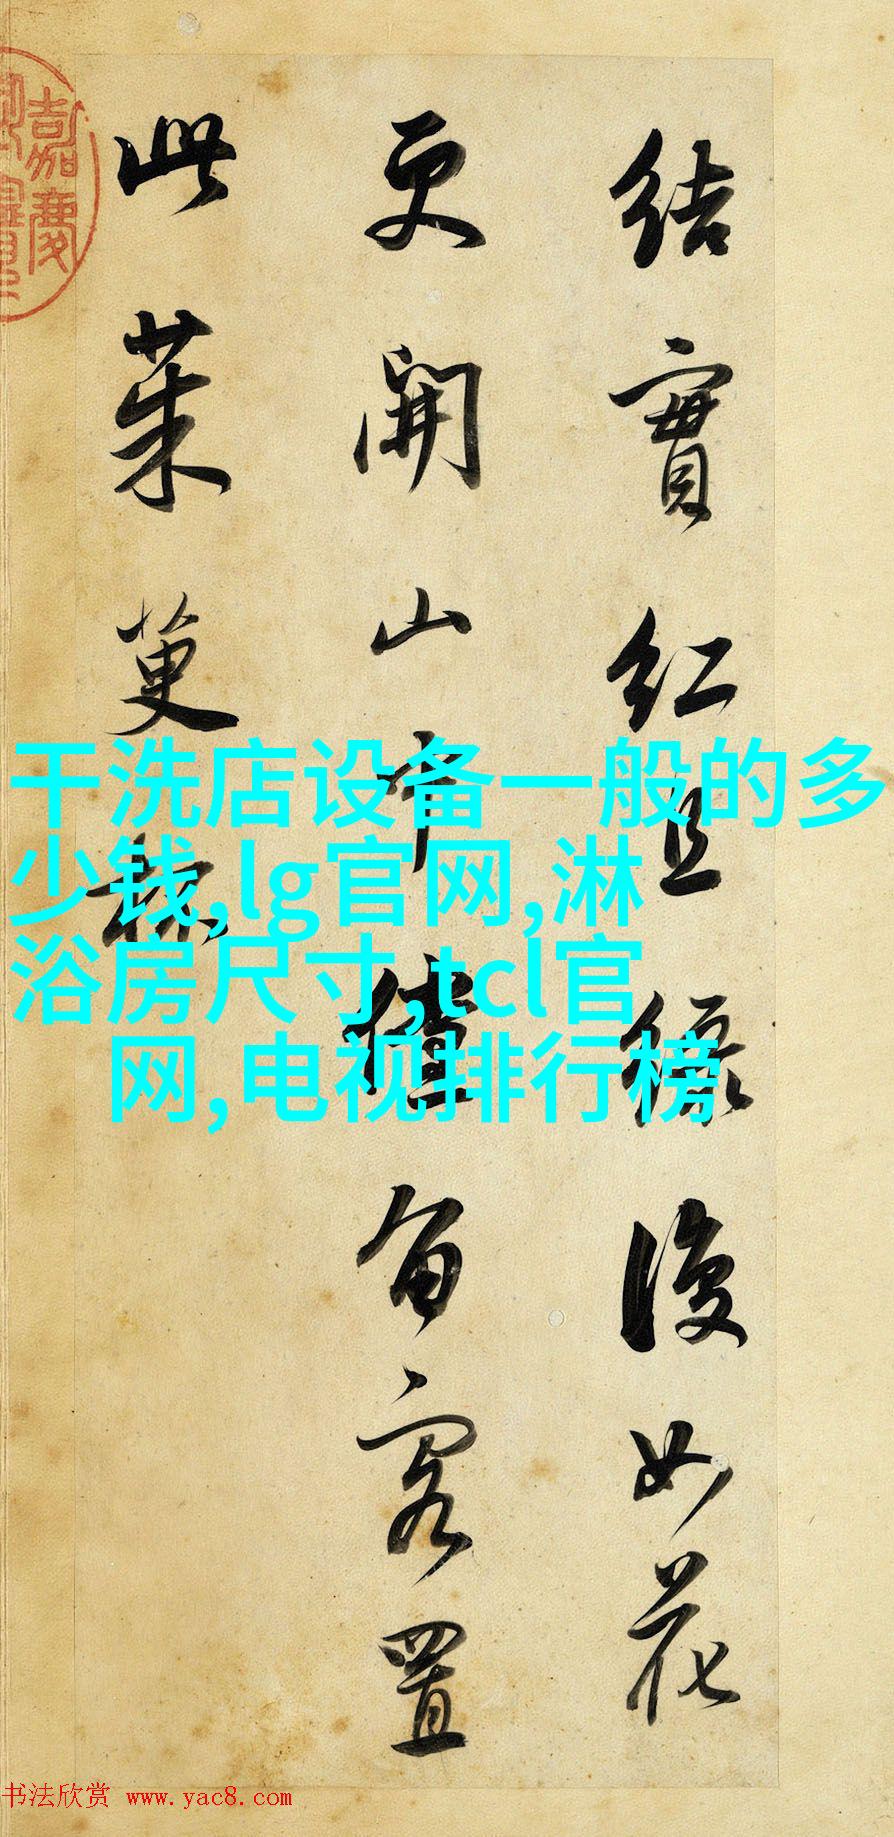 結實紅且綠復如花
更開山中儻留客置
此茱萸杯
干洗店设备一般的多
少钱,lg官网,淋
浴房尺寸,tcl官
网,电视排行榜
嘉慶
书法欣赏 www.yac8.com